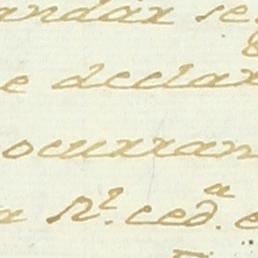 andar se
e declar
ocurran
a Nr. ced.a e